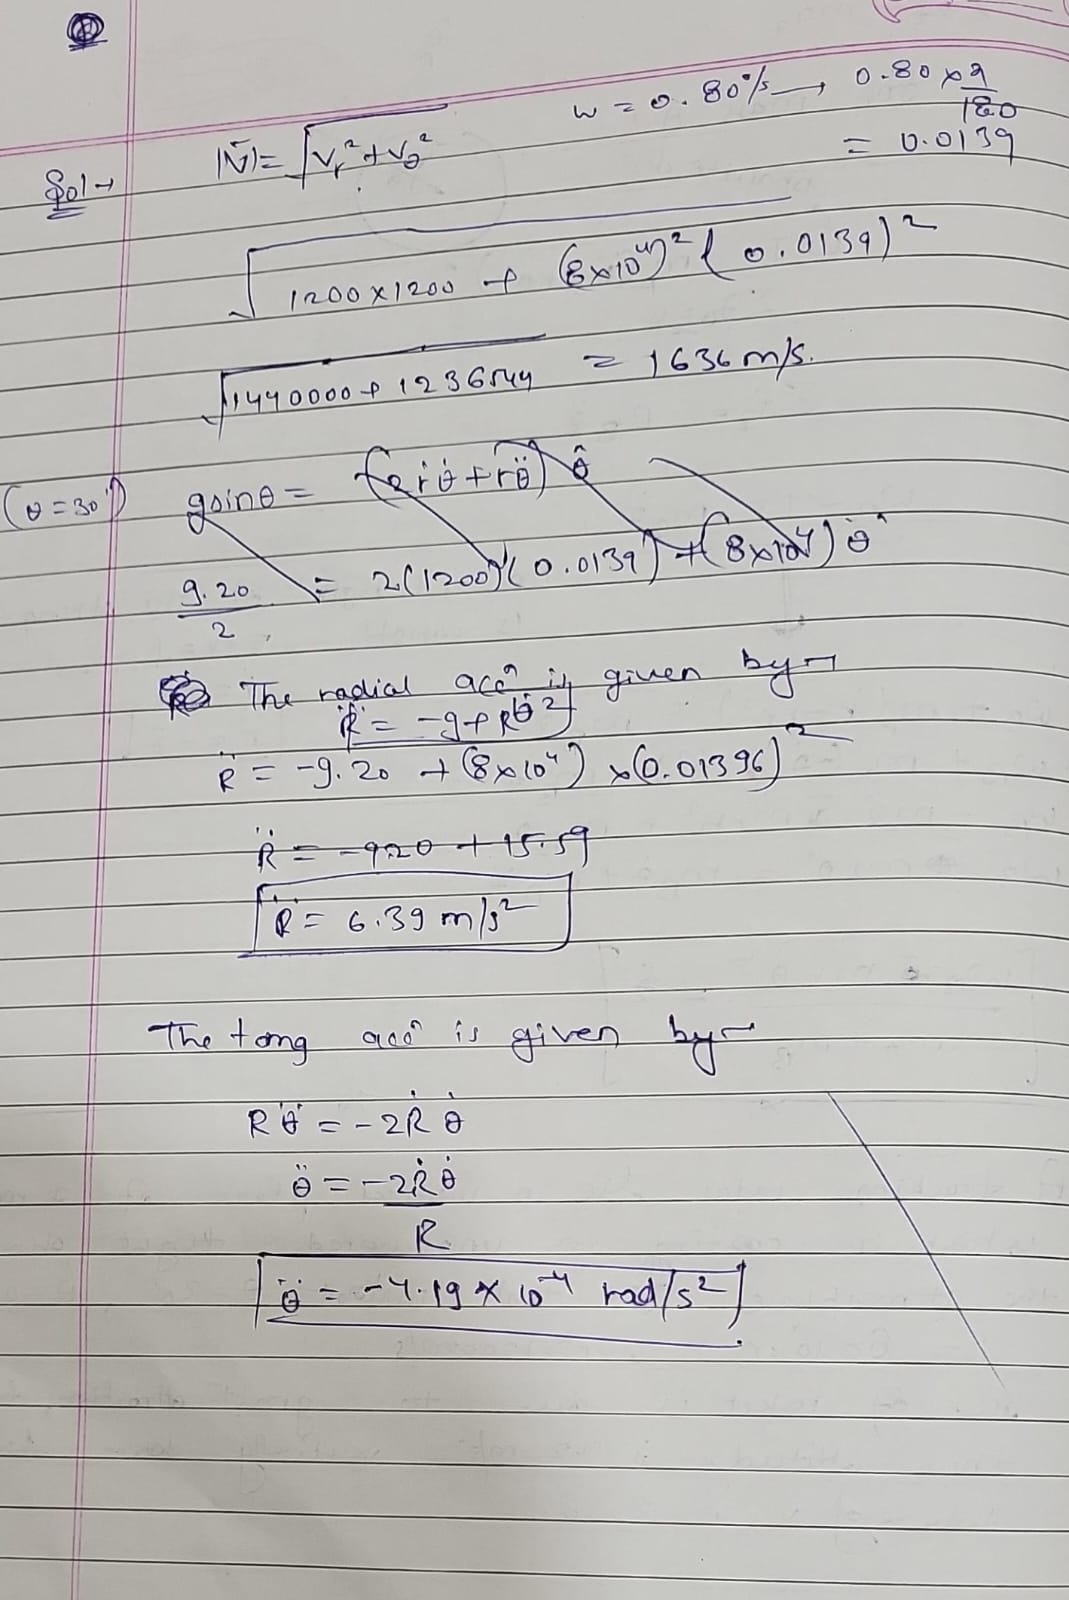 ω = 0.80°/s → 0.80 × π/180
= 0.0139
Sol →
|V̄| = √(Vr² + Vθ²)
√(1200×1200 + (8×10⁴)² (0.0139)²)
√(1440000 + 1236544) = 1636 m/s.
(θ = 30°) gsinθ = (2ṙθ̇ + rθ̈) θ̂
9.20/2 = 2(1200)(0.0139) + (8×10⁴) θ̈
The radial accⁿ is given by →
R̈ = -g + Rθ̇²
R̈ = -9.20 + (8×10⁴) × (0.01396)²
R̈ = -920 + 15.59
R̈ = 6.39 m/s²
The tang accⁿ is given by →
Rθ̈ = -2Ṙ θ̇
θ̈ = -2Ṙθ̇/R
θ̈ = -4.19 × 10⁻⁴ rad/s²